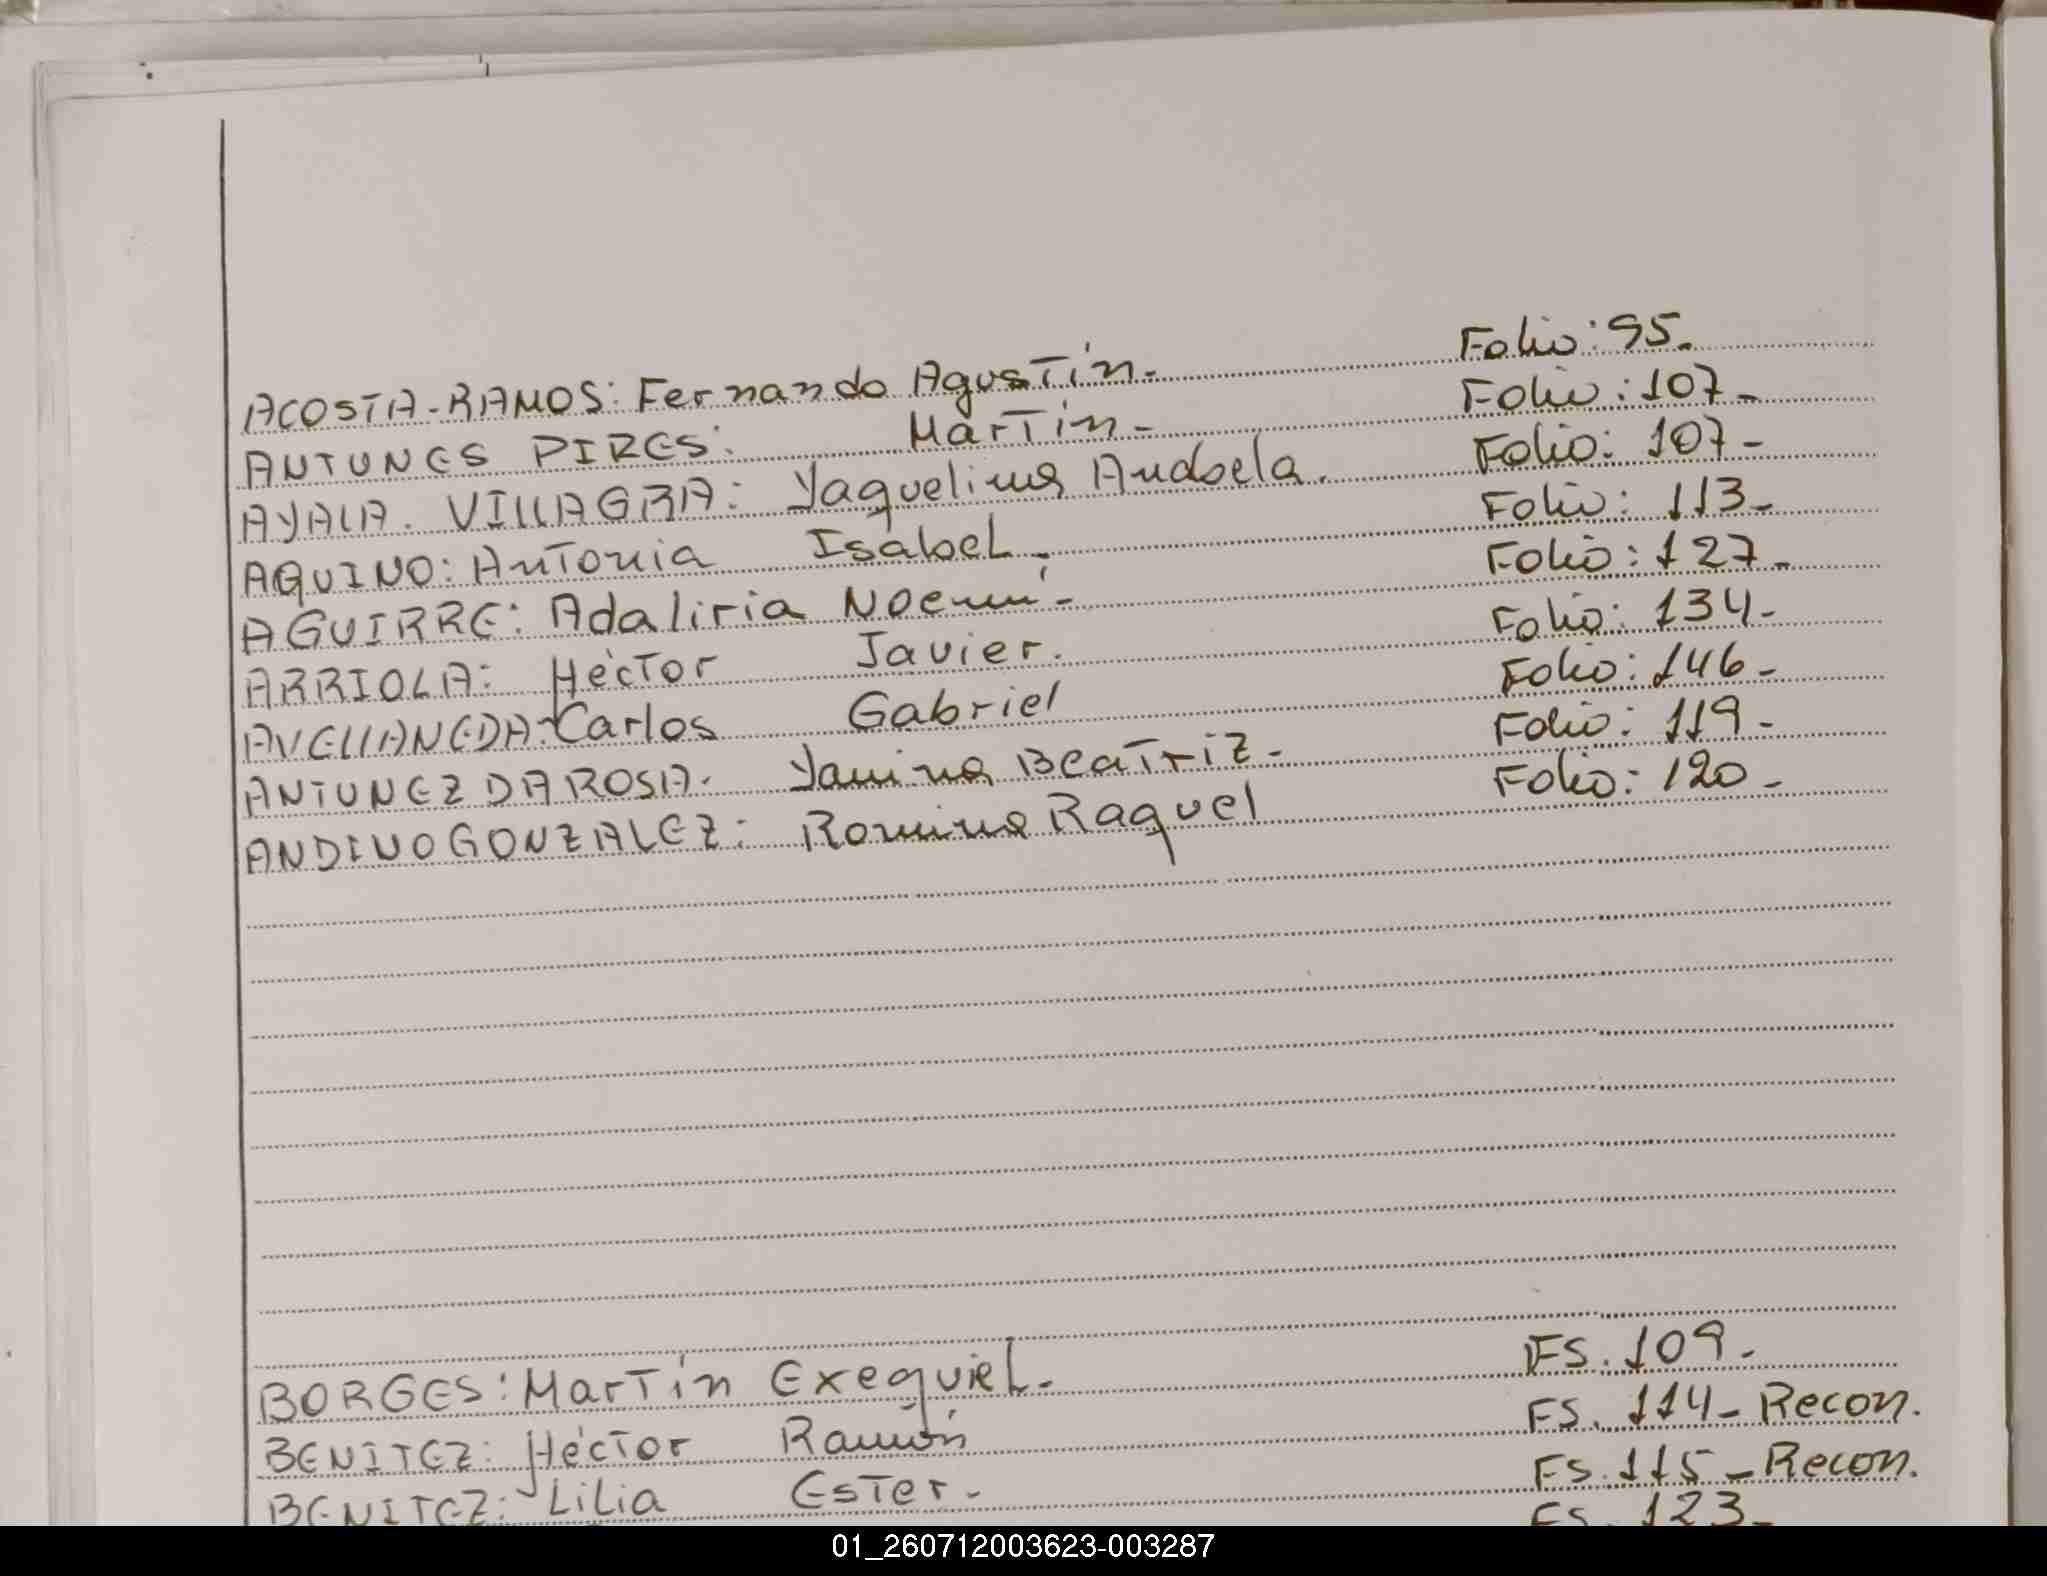 ACOSTA-RAMOS: Fernando Agustín- Folio: 95.
ANTUNES PIRES: Martín- Folio: 107-
AYALA. VILLAGRA: Yaquelina Andbela. Folio: 107-
AQUINO: Antonia Isabel. Folio: 113-
AGUIRRE: Adaliria Noemí- Folio: 127-
ARRIOLA: Héctor Javier. Folio: 134-
AVELLANEDA: Carlos Gabriel Folio: 146-
ANTUNEZ DA ROSA. Yanina Beatriz- Folio: 119-
ANDINO GONZALEZ: Romina Raquel Folio: 120-
BORGES: Martín Exequiel- FS. 109-
BENITEZ: Héctor Ramón FS. 114- Recon.
BENITEZ: Lilia Ester- FS. 115- Recon.
FS. 123-
01_260712003623-003287